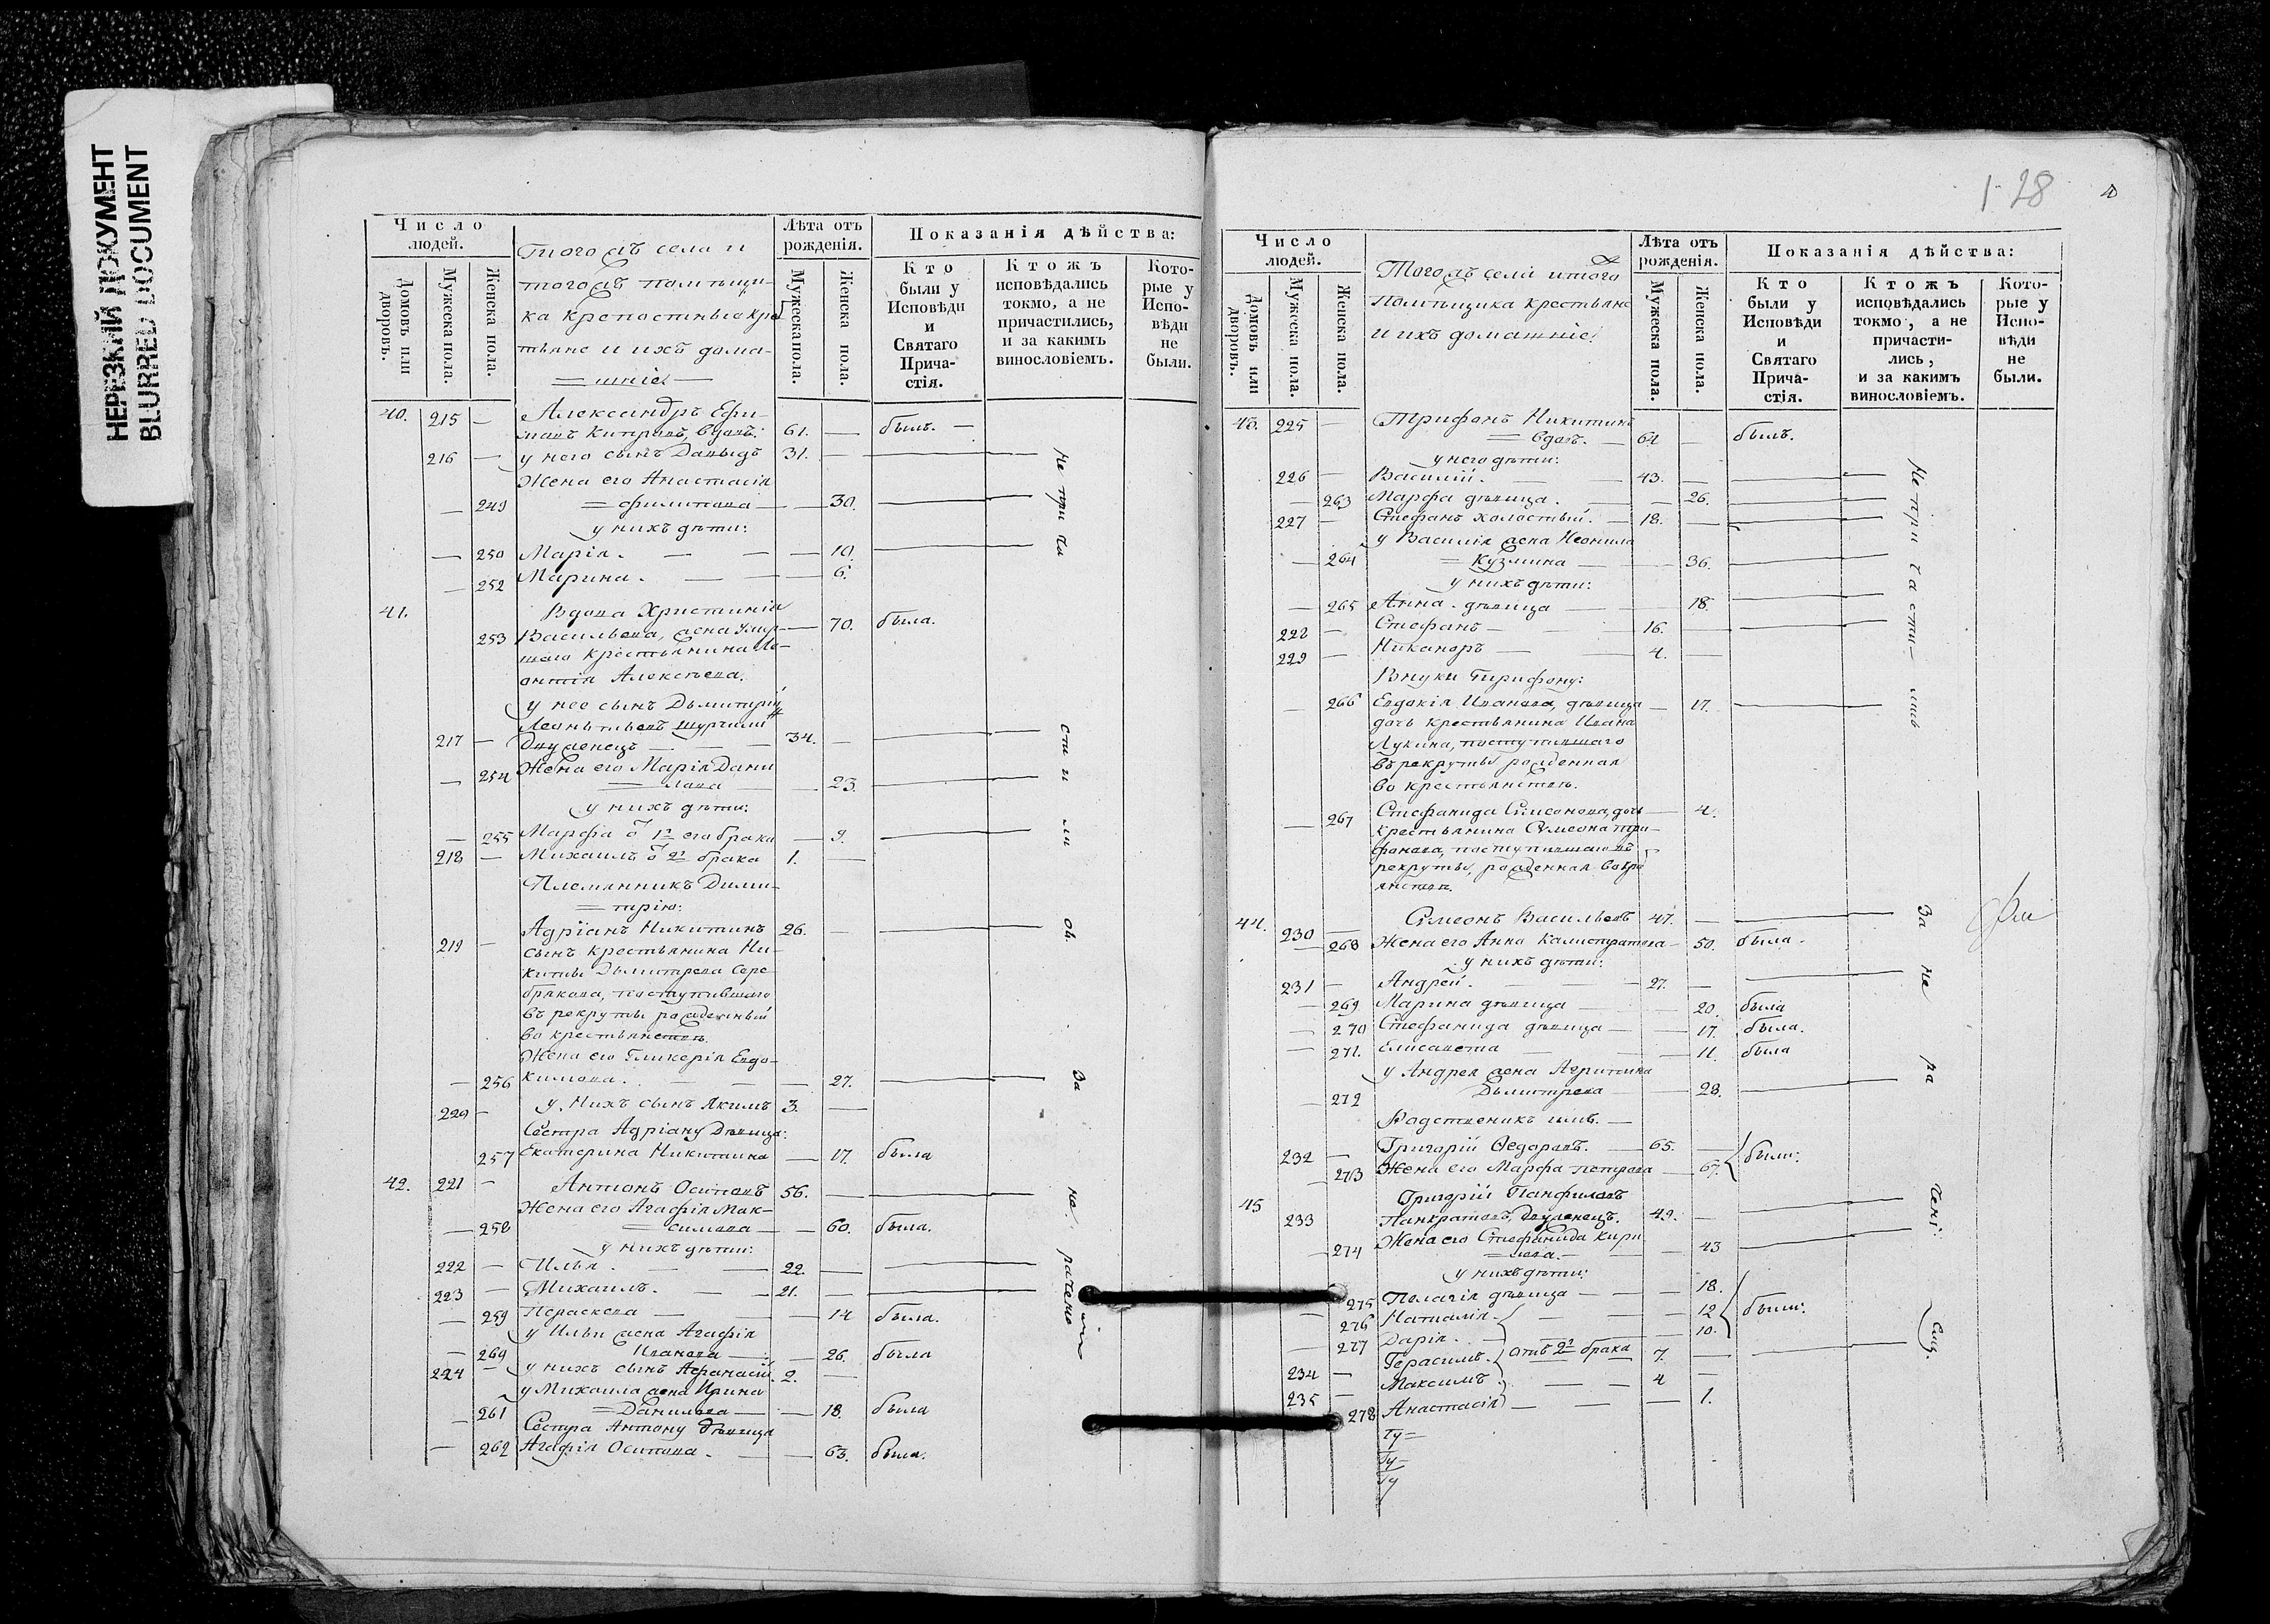 НЕРЕЗКИЙ ДОКУМЕНТ
BLURRED DOCUMENT
Число людей.
Домовъ или дворовъ.
Мужеска пола.
Женска пола.
Тогожъ села и
тогожъ помѣщи-
ка крепостные кре
тьяне и ихъ дома-
шніе
Лѣта отъ рожденія.
Мужеска пола.
Женска пола.
Показанія дѣйства:
Кто были у Исповѣди и Святаго Прича-стія.
Ктожъ исповѣдались токмо, а не причастились, и за какимъ винословіемъ.
Кото-рые у Испо-вѣди не были.
40. 215 — Александръ Ефи-
мовъ Вдовъ. 61. — былъ. —
216 — у него сынъ Давыдъ 31. —
Жена его Анастасія
— 249 = Филипова — — 30.
у нихъ дѣти:
— 250 Марія. — — — 10.
— 252 Марина. — — — 6.
41. Вдова Христинія
253 Васильева, жена умер- — 70. была.
шаго крестьянина Ле-
онтія Алексѣева.
у нее сынъ Дымитрій
Леонтьевъ
217 — Двуженецъ — — — 34. —
— 254 Жена его Марія Дани
= лова — — 23.
у нихъ дѣти:
— 255 Марфа ѿ 1го его брака — 9.
218 — Михаилъ ѿ 2го брака 1. —
Племянникъ Дими-
= трію:
219 — Адріанъ Никитинъ 26. —
сынъ крестьянина Ни-
киты Дымитрева Сере-
брякова, поступившаго
въ рекруты рожденный
во крестьянствѣ
Жена его Гликерія Евдо-
— 256 кимова. — — — 27.
220 — у нихъ сынъ Якимъ 3. —
Сестра Адріану Дѣвица:
257 Екатерина Никитина — 17. была
42. 221 — Антонъ Осиповъ 56. —
Жена его Агафія Мак-
— 258 = симова — — 60. была.
у нихъ дѣти:
222 — Илья. — — 22. —
223 — Михаилъ. — — 21. —
— 259 Параскева — — 14 была.
у Ильи жена Агафія
— 269 Иванова — — 26. была
224 — у нихъ сынъ Афанасій. 2. —
у Михаила жена Ирина
— 261 = Данилова — — 18. была
Сестра Антону Дѣвица
— 262 Агафія Осипова. — — 63. была.
Не при ча сти ли сь.
За не раченіемъ
128
Число людей.
Домовъ или дворовъ.
Мужеска пола.
Женска пола.
Тогожъ села итого
Помѣщика крестьяне
И ихъ домашніе
Лѣта отъ рожденія.
Мужеска пола.
Женска пола.
Показанія дѣйства:
Кто были у Исповѣди и Святаго Прича-стія.
Ктожъ исповѣдались токмо, а не причасти-лись, и за какимъ винословіемъ.
Кото-рые у Испо-вѣди не были.
43. 225 — Трифонъ Никитинъ
= Вдовъ. — 64 — былъ.
у него дѣти:
226 — Василій. — — 43. —
— 263 Марфа дѣвица. — — 26.
227 — Стефанъ холостый. — 18. —
у Василія жена Неонила
— 264 = Кузмина — — 36.
у нихъ дѣти:
— 265 Анна. дѣвица — — 18.
228 — Стефанъ — — 16. —
229 — Никаноръ — — 4. —
Внуки Трифону:
— 266 Евдокія Иванова, дѣвица — 17.
дочь крестьянина Ивана
Лукина, поступившаго
въ рекруты рожденная
во крестьянствѣ.
— 267 Стефанида Симеонова, дочь — 4.
крестьянина Симеона три-
фонова, поступившаго въ
рекруты, рожденная во кре
янствѣ.
44. 230 — Симеонъ Васильевъ 47. —
— 268 Жена его Анна Калистратова — 50. была.
у нихъ дѣти:
231 — Андрей. — — 27. —
— 269 Марина дѣвица — — 20. была
— 270 Стефанида дѣвица — — 17. была.
— 271. Елисавета — — 11. была
у Андрея жена Агрипина
— 272 Дымитрева — — 28.
Родственикъ имъ. —
232 — Григорій Ѳедоровъ. — 65. —
— 273 Жена его Марфа петрова — 67. были:
45 Григорій Панфиловъ
233 Панкратовъ, Двуженецъ. 49. —
Жена его Стефанида Кири
— 274 = лова. — — 43
у нихъ дѣти:
275 Пелагія дѣвица — — 18.
— 276 Наталія. — — 12 были:
— 277 Дарія. — — 10.
234 — Герасимъ. отъ 2го брака 7. —
235 — Максимъ. — — 4 —
278 Анастасія — — — 1.
Ту=
Ту=
Ту
Не при ча сти- лись
За не ра чені